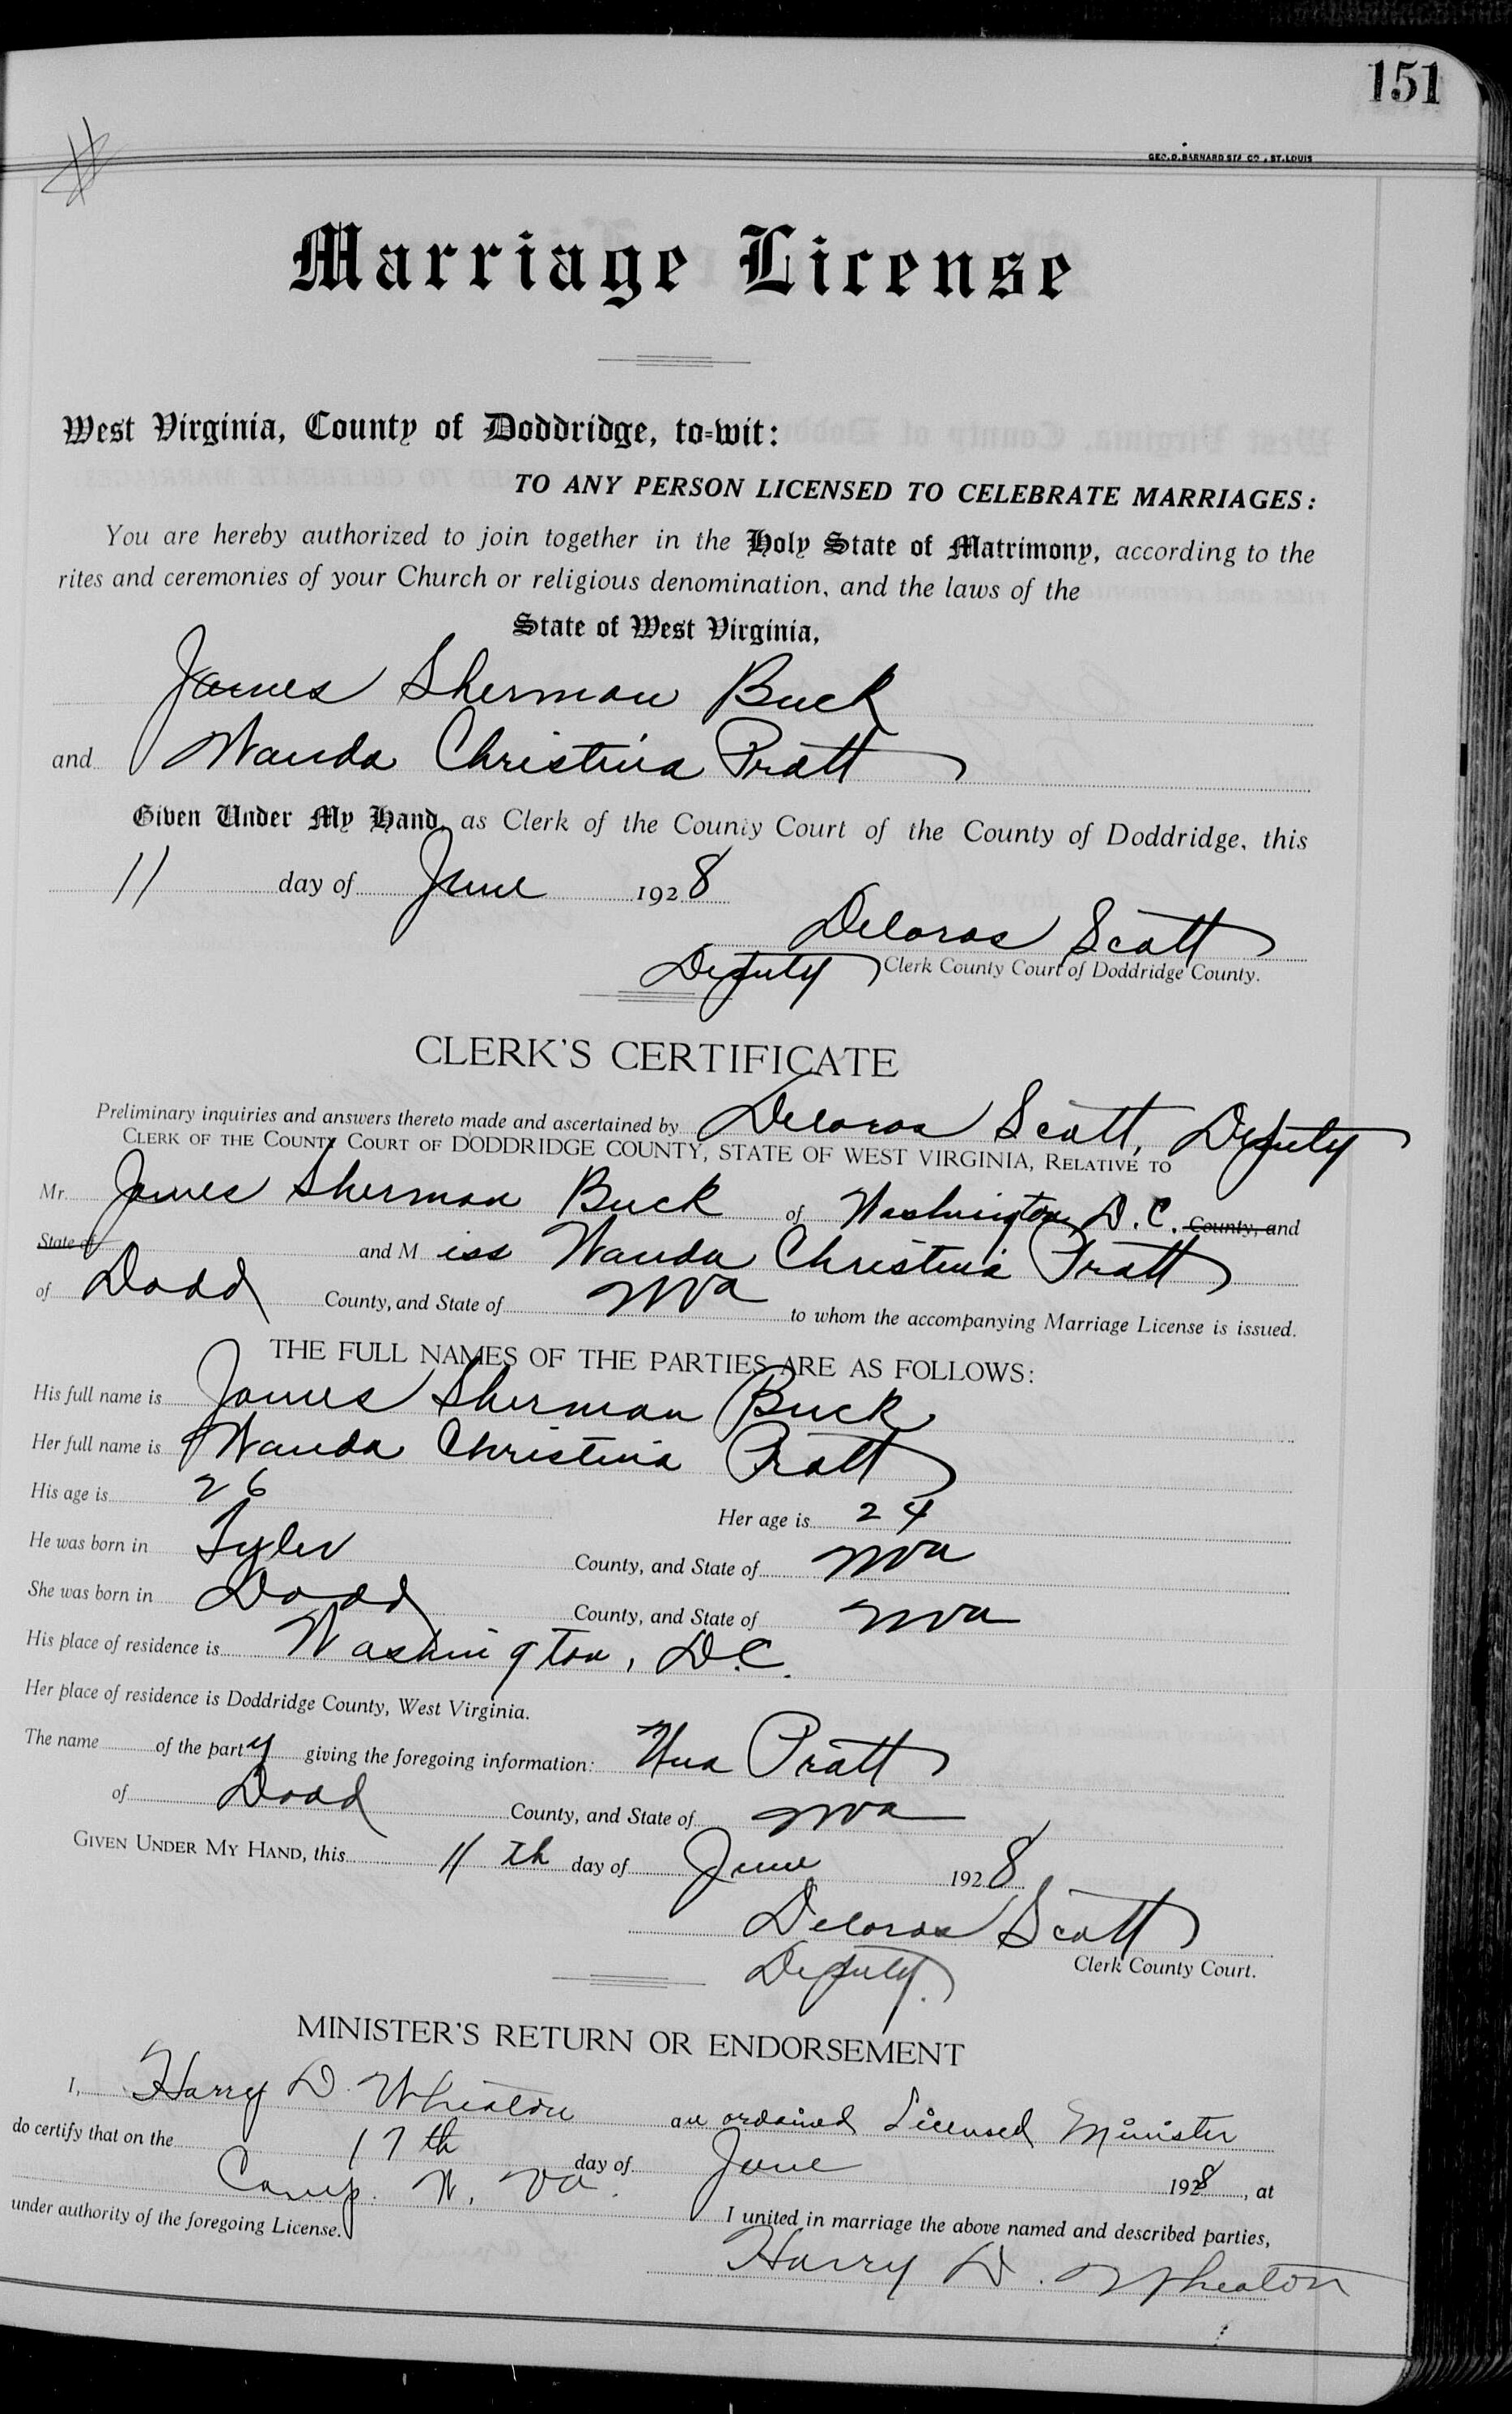 151
GEO. D. BARNARD STA CO., ST. LOUIS
Marriage License
West Virginia, County of Doddridge, to=wit:
TO ANY PERSON LICENSED TO CELEBRATE MARRIAGES:
You are hereby authorized to join together in the Holy State of Matrimony, according to the
rites and ceremonies of your Church or religious denomination, and the laws of the
State of West Virginia,
James Sherman Buck
and Wanda Christina Pratt
Given Under My Hand, as Clerk of the County Court of the County of Doddridge, this
11 day of June 1928
Deloras Scott
Deputy Clerk County Court of Doddridge County.
CLERK'S CERTIFICATE
Preliminary inquiries and answers thereto made and ascertained by Deloras Scott, Deputy
CLERK OF THE COUNTY COURT OF DODDRIDGE COUNTY, STATE OF WEST VIRGINIA, RELATIVE TO
Mr. James Sherman Buck of Washington D.C. County, and
State of and Miss Wanda Christina Pratt
of Dodd County, and State of WVa to whom the accompanying Marriage License is issued.
THE FULL NAMES OF THE PARTIES ARE AS FOLLOWS:
His full name is James Sherman Buck
Her full name is Wanda Christina Pratt
His age is 26 Her age is 24
He was born in Tyler County, and State of WVa
She was born in Dodd County, and State of WVa
His place of residence is Washington, D.C.
Her place of residence is Doddridge County, West Virginia.
The name of the party giving the foregoing information: Pratt
of Dodd County, and State of WVa
GIVEN UNDER MY HAND, this 11th day of June 1928
Deloras Scott
Deputy. Clerk County Court.
MINISTER'S RETURN OR ENDORSEMENT
I, Harry D. Wheaton an ordained Licensed Minister
do certify that on the 17th day of June 1928, at
Camp. W. Va. I united in marriage the above named and described parties,
under authority of the foregoing License.
Harry D. Wheaton